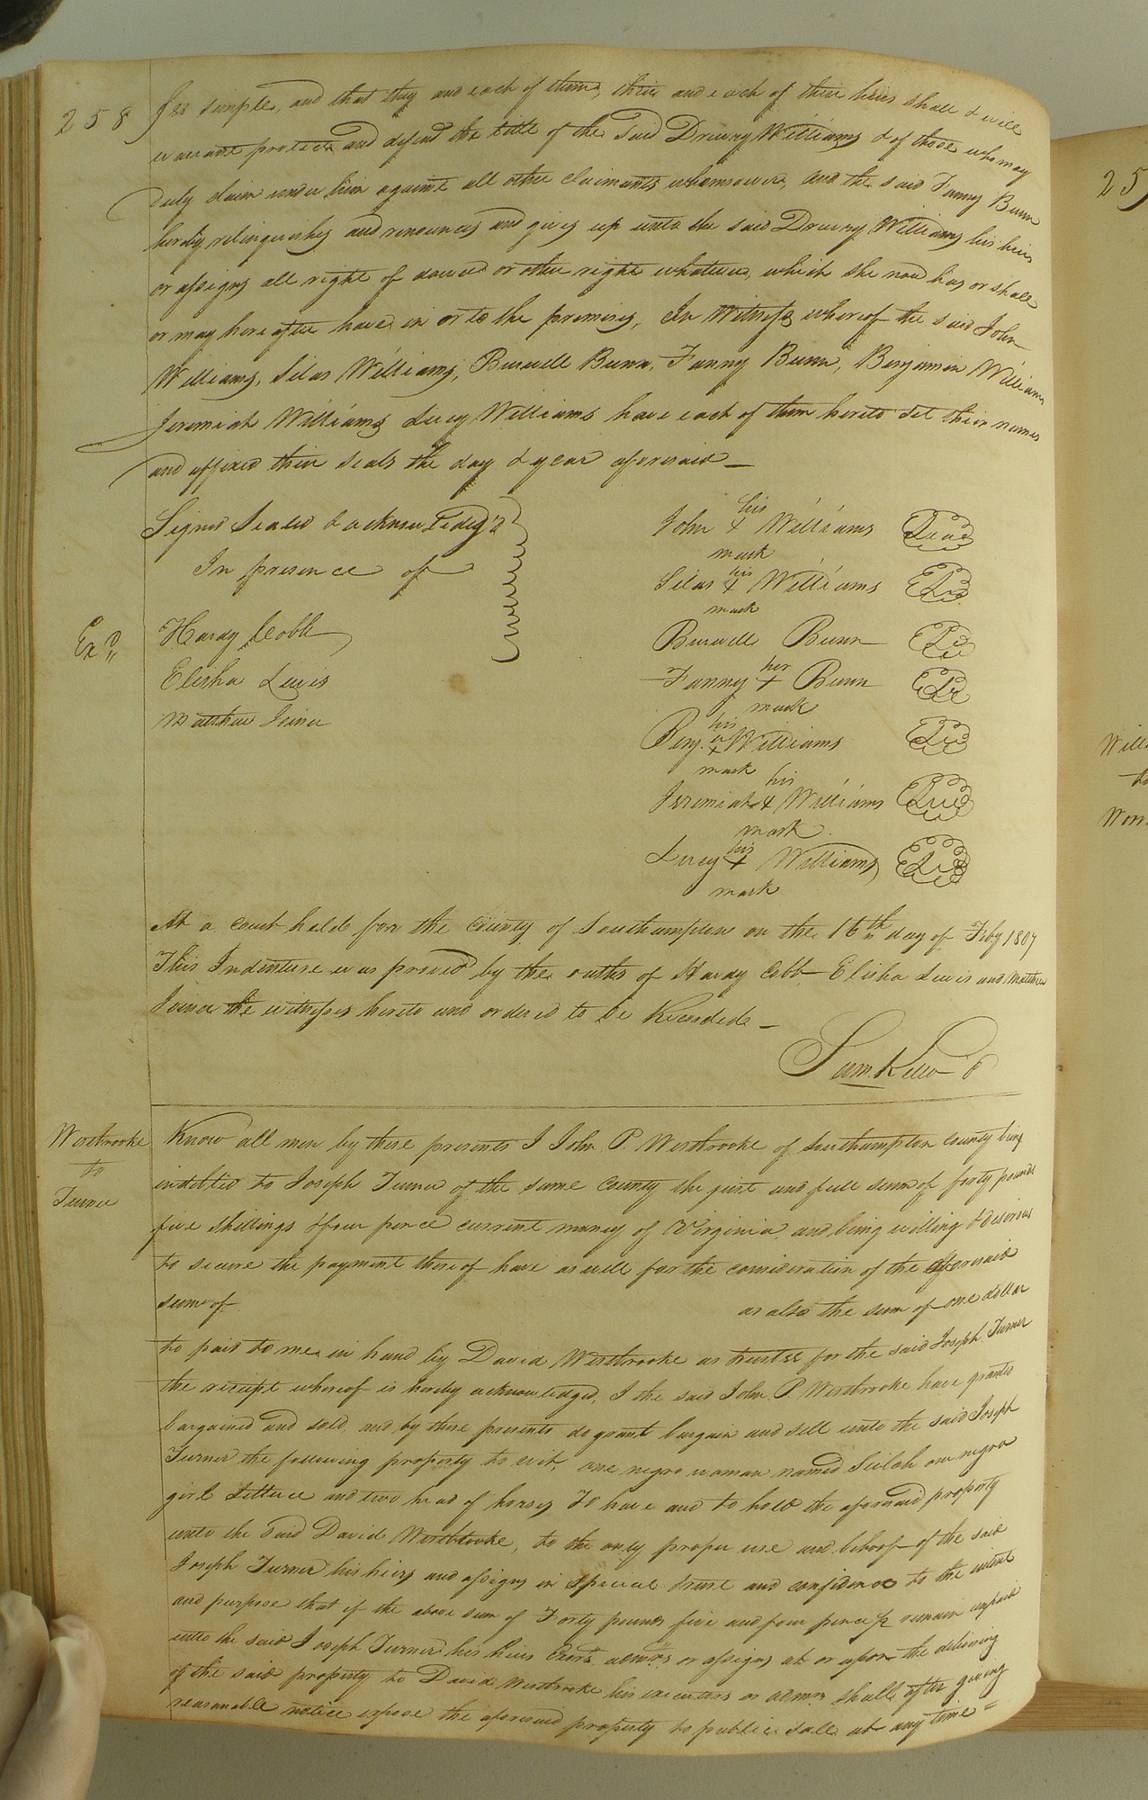 258
fee simple, and that they and each of them, their and each of their heirs shall & will
warrant protect and defend the title of the Said Drewry Williams & of those who may
duly claim under him against all other claimants whomsoever, and the said Fanny Bunn
hereby relinquishes and renounces and gives up unto the said Drewry Williams his heirs
or assigns all right of dower or other right whatever, which she now has or shall
or may hereafter have in or to the premises, In Witness whereof the said John
Williams, Silas Williams, Burwell Bunn, Fanny Bunn, Benjamin Williams
Jeremiah Williams Lucy Williams have each of them hereto set their names
and affixed their seals the day & year aforesaid —
Signed Sealed & acknowledg'd
In presence of
Exd
Hardy Cobb
Elisha Lewis
Matthew Joiner
his
John + Williams Seal
mark
his
Silas + Williams LS
mark
Burwell Bunn LS
her
Fanny + Bunn LS
mark
his
Benj. + Williams LS
mark
his
Jeremiah + Williams LS
mark
his
Lucy + Williams LS
mark
At a court held for the county of Southampton on the 16th day of Feby 1807
This Indenture was proved by the oaths of Hardy Cobb Elisha Lewis and Matthew
Joiner the witnesses hereto and ordered to be Recorded —
Sam. Kello C
Westbrooke
to
Turner
Know all men by these presents I John P. Westbrooke of Southampton County being
indebted to Joseph Turner of the same County the just and full sum of forty pounds
five shillings & four pence current money of Virginia and being willing & desirous
to secure the payment thereof have as well for the consideration of the aforesaid
sum of as also the sum of one dollar
to paid to me in hand by David Westbrooke as trustee for the said Joseph Turner
the receipt whereof is hereby acknowledged, I the said John P. Westbrooke have granted
bargained and sold, and by these presents do grant bargain and sell unto the said Joseph
Turner the following property to wit, one negro woman named Seilah one negro
girl Lettuce and two head of horses To have and to hold the aforesaid property
unto the Said David Westbrooke, to the only proper use and behoof of the said
Joseph Turner his heirs and assigns in Special trust and confidence to the intent
and purpose that if the above sum of Forty pounds five and four pence remain unpaid
unto the said Joseph Turner his heirs Exors admors or assigns at or upon the delivering
of the said property to David Westbrooke his executors or admors shall after giving
reasonable notice expose the aforesaid property to public sale at any time =
25
Will
to